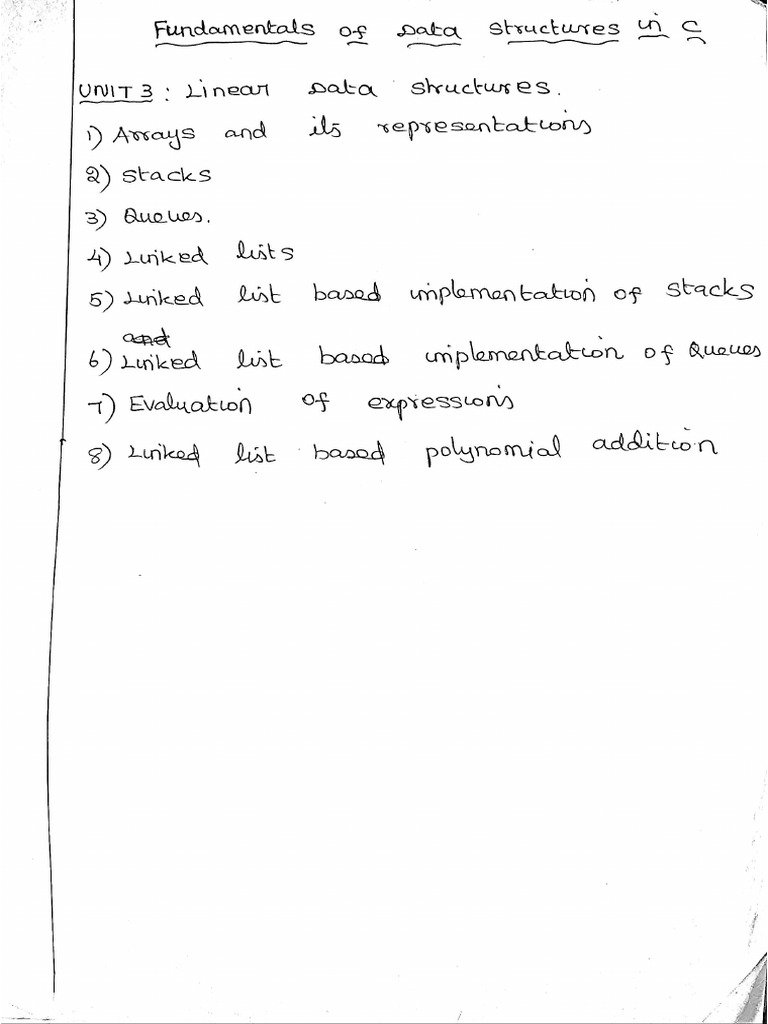 Fundamentals of Data structures in C
UNIT 3 : Linear Data structures.
1) Arrays and its representations
2) Stacks
3) Queues.
4) Linked lists
5) Linked list based implementation of stacks
and
6) Linked list based implementation of Queues
7) Evaluation of expressions
8) Linked list based polynomial addition